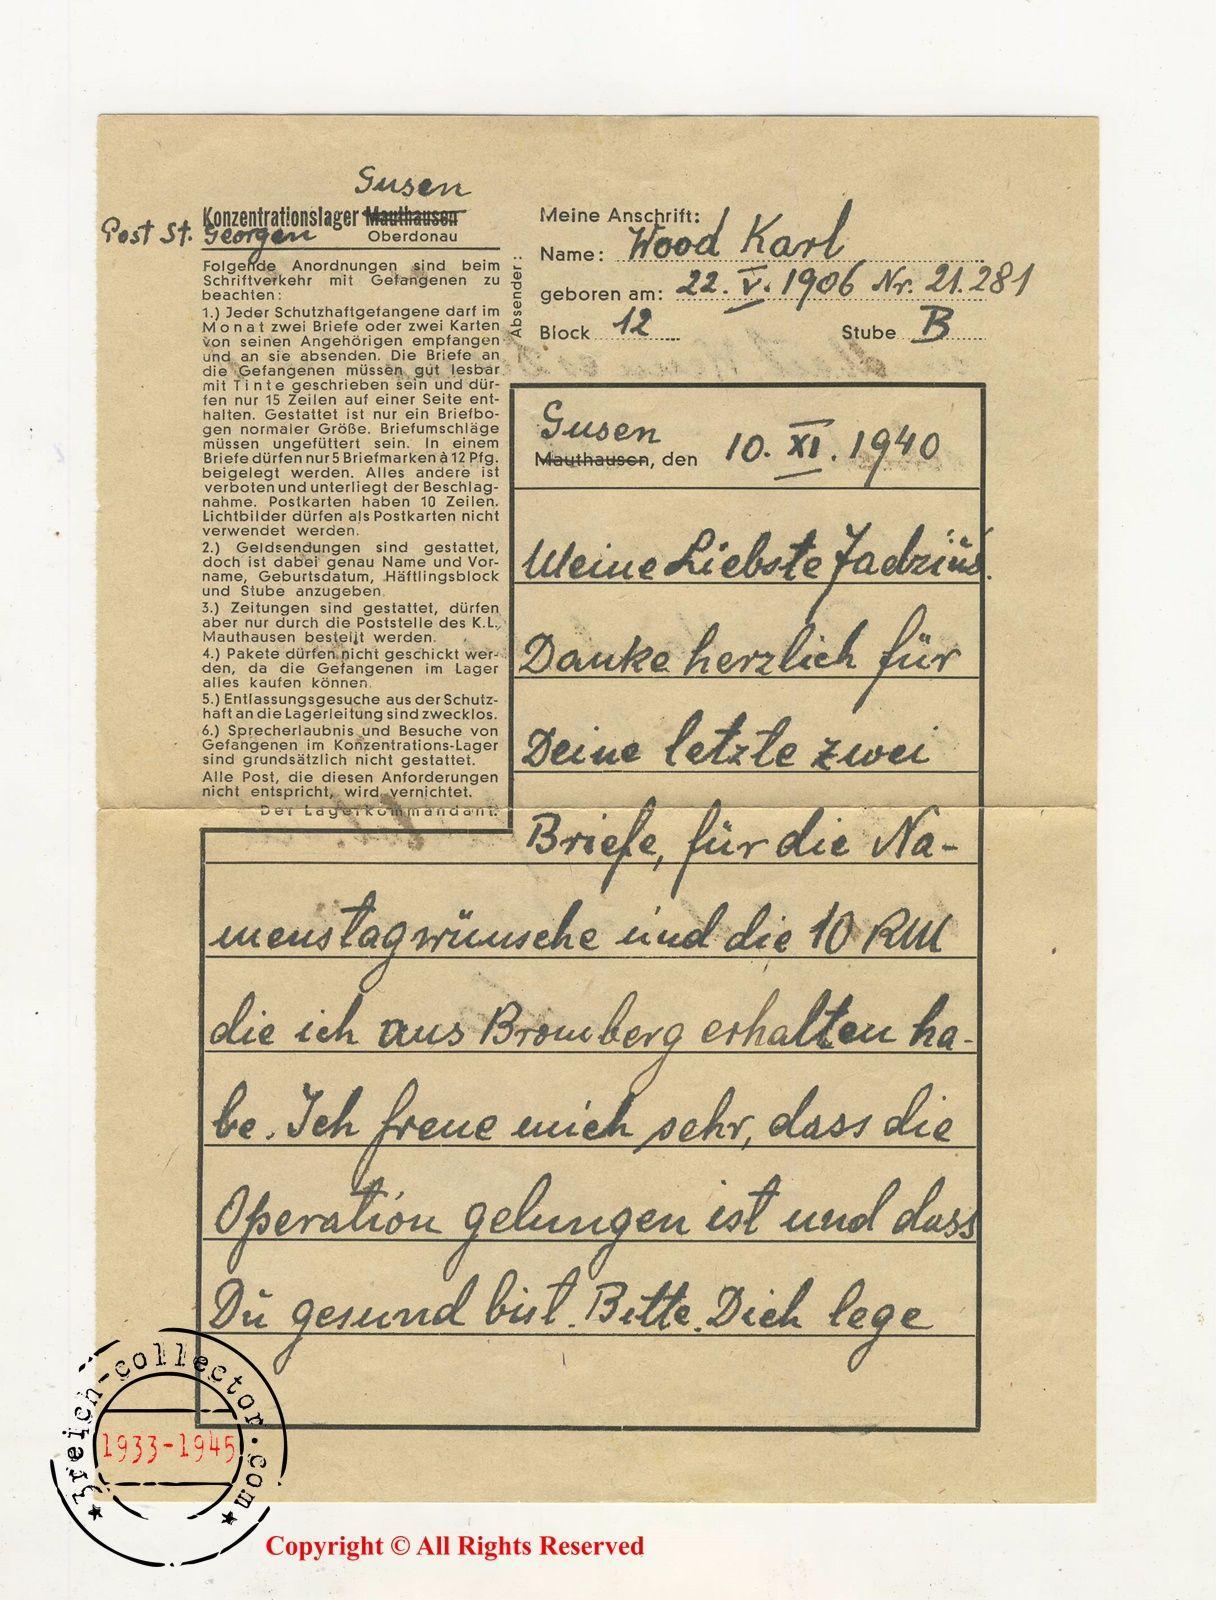 Gusen
Konzentrationslager Mauthausen
Post St. Georgen
Oberdonau
Folgende Anordnungen sind beim
Schriftverkehr mit Gefangenen zu
beachten:
1.) Jeder Schutzhaftgefangene darf im
Monat zwei Briefe oder zwei Karten
von seinen Angehörigen empfangen
und an sie absenden. Die Briefe an
die Gefangenen müssen gut lesbar
mit Tinte geschrieben sein und dür-
fen nur 15 Zeilen auf einer Seite ent-
halten. Gestattet ist nur ein Briefbo-
gen normaler Größe. Briefumschläge
müssen ungefüttert sein. In einem
Briefe dürfen nur 5 Briefmarken à 12 Pfg.
beigelegt werden. Alles andere ist
verboten und unterliegt der Beschlag-
nahme. Postkarten haben 10 Zeilen.
Lichtbilder dürfen als Postkarten nicht
verwendet werden.
2.) Geldsendungen sind gestattet,
doch ist dabei genau Name und Vor-
name, Geburtsdatum, Häftlingsblock
und Stube anzugeben.
3.) Zeitungen sind gestattet, dürfen
aber nur durch die Poststelle des K.L.
Mauthausen bestellt werden.
4.) Pakete dürfen nicht geschickt wer-
den, da die Gefangenen im Lager
alles kaufen können.
5.) Entlassungsgesuche aus der Schutz-
haft an die Lagerleitung sind zwecklos.
6.) Sprecherlaubnis und Besuche von
Gefangenen im Konzentrations-Lager
sind grundsätzlich nicht gestattet.
Alle Post, die diesen Anforderungen
nicht entspricht, wird vernichtet.
Der Lagerkommandant.
Absender:
Meine Anschrift:
Name: Wood Karl
geboren am: 22. V. 1906 Nr. 21.281
Block 12 Stube B
Gusen
Mauthausen, den 10. XI. 1940
Meine Liebste
Danke herzlich für
Deine letzte zwei
Briefe, für die Na-
menstagwünsche und die 10 RM
die ich aus Bromberg erhalten ha-
be. Ich freue mich sehr, dass die
Operation gelungen ist und dass
Du gesund bist. Bitte Dich lege
3reich-collector.com
1933-1945
Copyright © All Rights Reserved